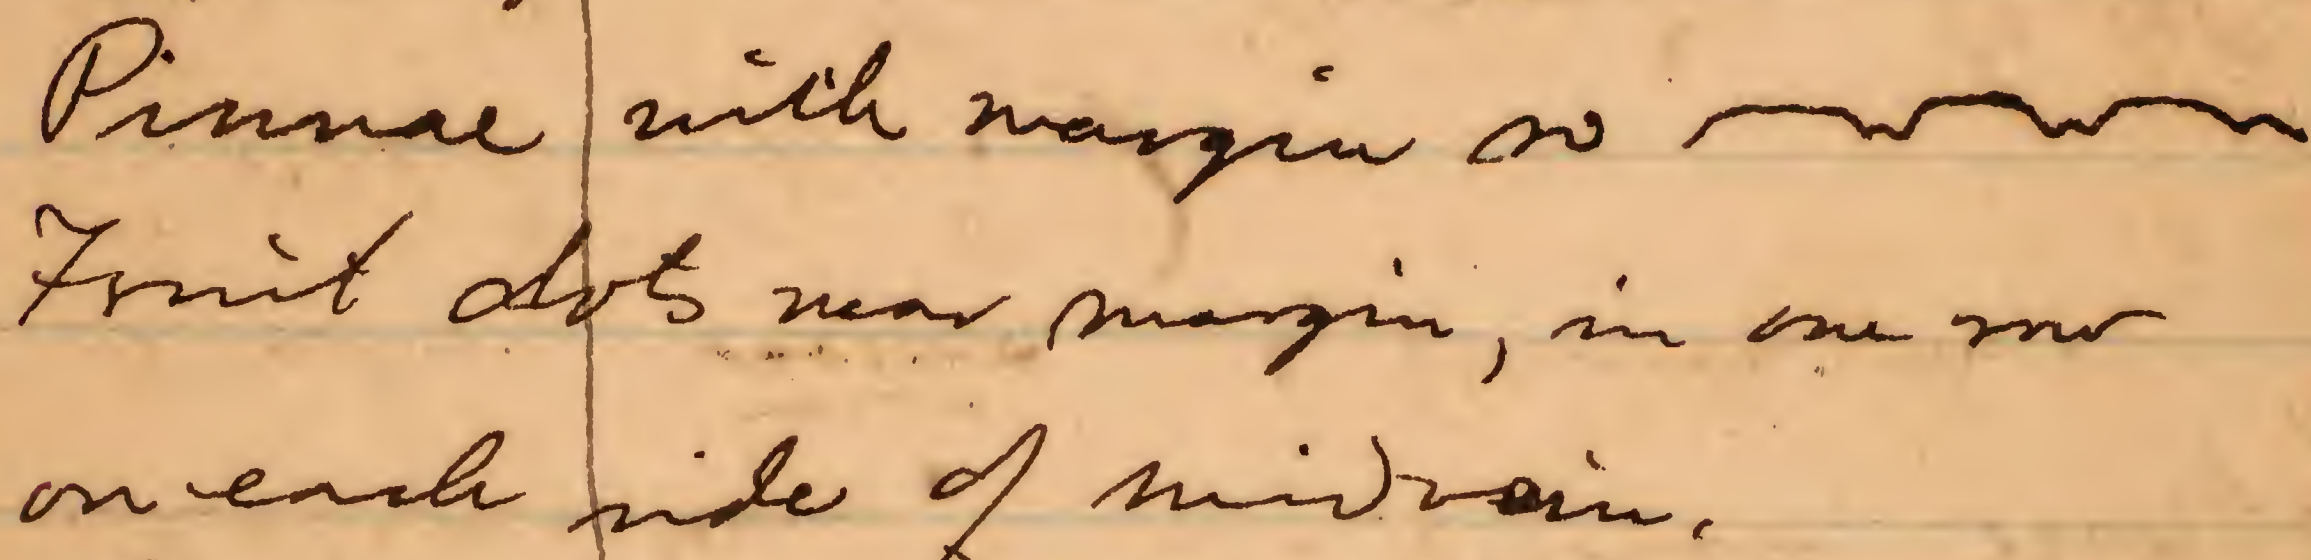 Pinnae with margin so
Fruit dots near margin, in one row
on each side of midvein.